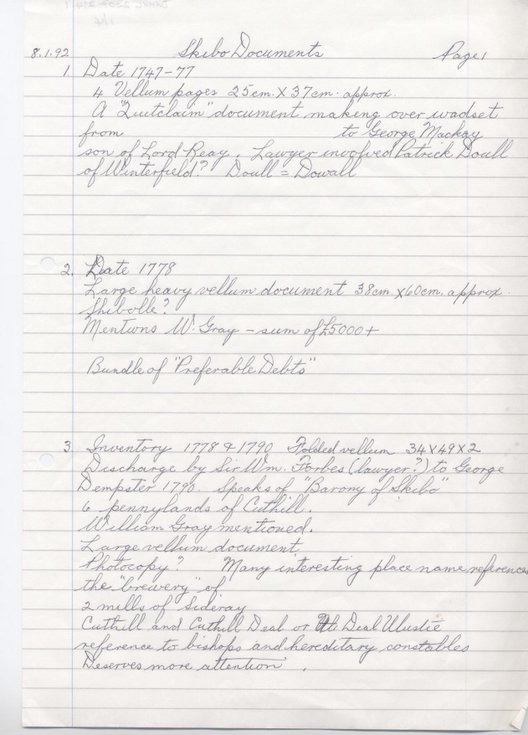 8.1.92 Skibo Documents Page 1
1. Date 1747-77
4 Vellum pages 25cm. X 37cm. approx.
A "Quitclaim" document making over wadset
from to George Mackay
son of Lord Reay. Lawyer involved Patrick Doull
of Winterfield? Doull = Dowall
2. Date 1778
Large heavy vellum document 38cm X 60cm. approx.
Skibolle?
Mentions W. Gray - sum of £5000+
Bundle of "Preferable Debts"
3. Inventory 1778 & 1790 Folded vellum 34 X 49 X 2
Discharge by Sir Wm. Forbes (lawyer?) to George
Dempster 1790. Speaks of "Barony of Skibo"
6 pennylands of Cuthill.
William Gray mentioned.
Large vellum document
Photocopy? Many interesting place name references
the "brewery" of
2 mills of Sideray
Cuthill and Cuthill Deal or Deal Ulustie
reference to bishops and hereditary constables
Deserves more attention.